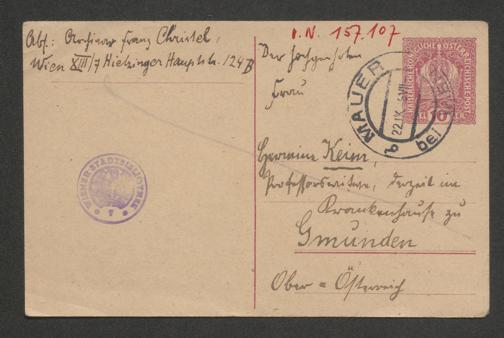 Abs: Archivar Franz Christel,
Wien XIII/7 Hietzinger Hauptstr. 124 B
I.N. 157.107
Der hochgeehrten
Frau
KAISERLICHE KÖNIGLICHE ÖSTERREICHISCHE POST
10
MAUER bei WIEN
22.IX
b
Hermine Keim,
Professorswitwe, derzeit im
Krankenhause zu
Gmunden
Ober-Österreich
WIENER STADTBIBLIOTHEK
7